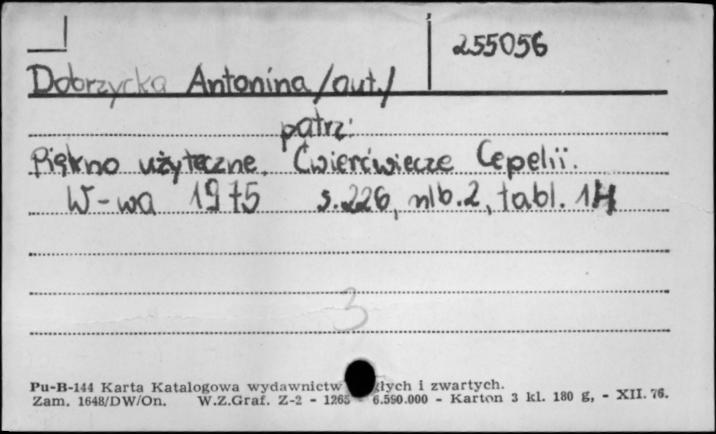 255056
Dobrzycka Antonina /aut./
patrz:
Piękno użyteczne. Ćwierćwiecze Cepelii.
W-wa 1975 s.226, nlb.2, tabl. 14
3
Pu-B-144 Karta Katalogowa wydawnictw i zwartych.
Zam. 1648/DW/On. W.Z.Graf. Z-2 - 1265 6.590.000 - Karton 3 kl. 180 g, - XII. 76.